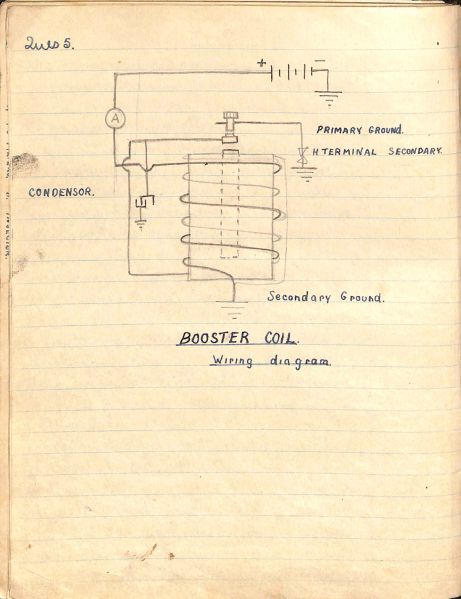 Ques 5.
+ −
A
PRIMARY GROUND.
H TERMINAL SECONDARY.
CONDENSOR.
Secondary Ground.
BOOSTER COIL.
Wiring diagram.